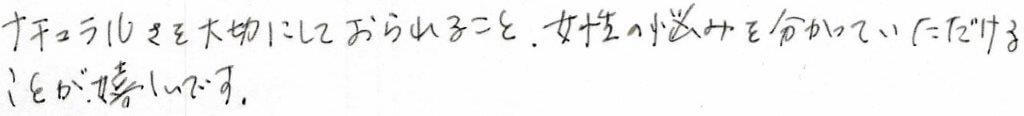 ナチュラルさを大切にしておられること、女性の悩みを分かっていただける
ことが嬉しいです。